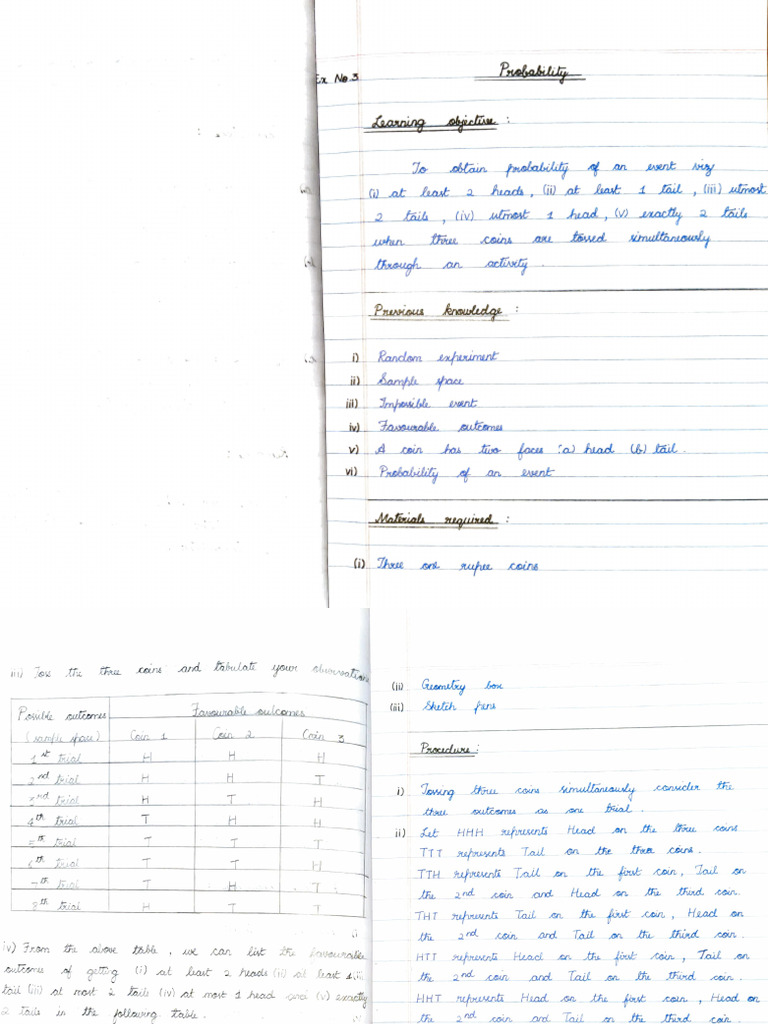 Ex No.3
Probability
Learning objective :
To obtain probability of an event viz
(i) at least 2 heads, (ii) at least 1 tail, (iii) utmost
2 tails, (iv) utmost 1 head, (v) exactly 2 tails
when three coins are tossed simultaneously
through an activity.
Previous knowledge :
i) Random experiment
ii) Sample space
iii) Impossible event
iv) Favourable outcomes
v) A coin has two faces :a) head (b) tail.
vi) Probability of an event
Materials required :
(i) Three one rupee coins
iii) Toss the three coins and tabulate your observations
Possible outcomes Favourable outcomes
(sample space) Coin 1 Coin 2 Coin 3
1st trial H H H
2nd trial H H T
3rd trial H T H
4th trial T H H
5th trial T T T
6th trial T T H
7th trial T H T
8th trial H T T
iv) From the above table, we can list the favourable
outcome of getting (i) at least 2 heads (ii) at least 1
tail (iii) at most 2 tails (iv) at most 1 head and (v) exactly
2 tails in the following table.
(ii) Geometry box
(iii) Sketch pens
Procedure :
i) Tossing three coins simultaneously consider the
three outcomes as one trial.
ii) Let HHH represents Head on the three coins
TTT represents Tail on the three coins.
TTH represents Tail on the first coin, Tail on
the 2nd coin and Head on the third coin.
THT represents Tail on the first coin, Head on
the 2nd coin and Tail on the third coin.
HTT represents Head on the first coin, Tail on
the 2nd coin and Tail on the third coin.
HHT represents Head on the first coin, Head on
the 2nd coin and Tail on the third coin.